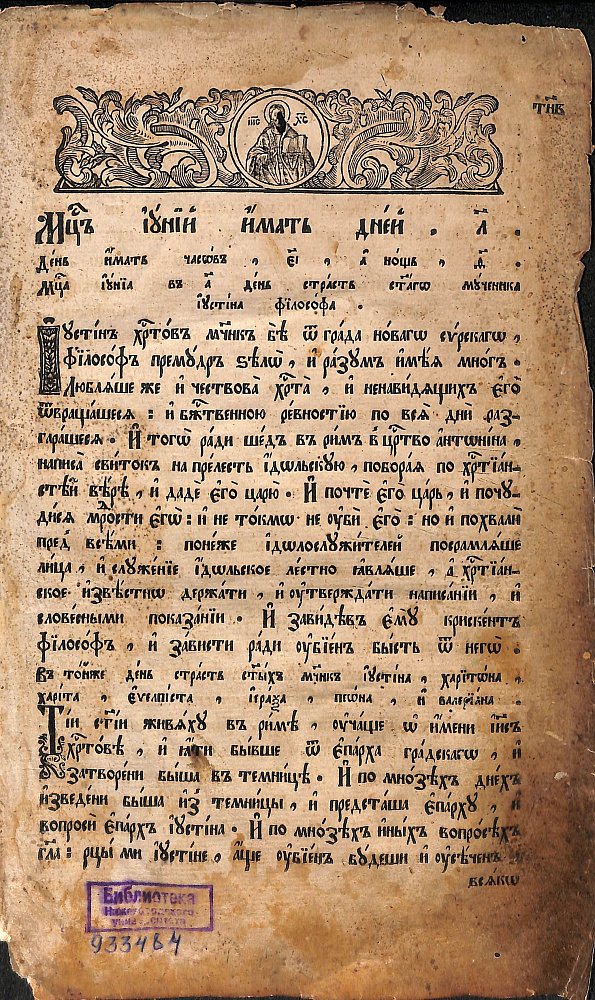 тн҃в
І҆И҃С Х҃С
Мцⷭ҇ъ і҆ꙋ́нїй и҆́мать дне́й . л҃ .
де́нь и҆́мать часѡ́въ , є҃і , а҆ но́щь , ѳ҃ .
Мцⷭ҇а і҆ꙋ́нїа въ а҃ де́нь стра́сть ст҃а́гѡ мꙋ́ченика
і҆ꙋсті́на фїло́софа .
І҆ꙋсті́нъ хрⷭ҇то́въ мч҃нкъ бѣ̀ ѿ гра́да но́вагѡ сѵ́рскагѡ ,
фїло́софъ премꙋ́дръ ѕѣлѡ̀ , и҆ ра́зꙋмъ и҆мѣ́ѧ мно́гъ .
Любѧ́ше же и҆ че́ствова хрⷭ҇та̀ , и҆ ненави́дѧщихъ є҆го̀
ѿвраща́шесѧ : и҆ бжⷭ҇твенною ре́вностїю по всѧ̀ дни̑ раз-
гара́шесѧ . И҆ тогѡ̀ ра́ди ше́дъ въ ри́мъ в цр҃тво а҆нтѡни́на ,
написа̀ сви́токъ на пре́лесть і҆́дѡльскꙋю , побора́ѧ по хрⷭ҇тїа́н-
стѣй вѣ́рѣ , и҆ дадѐ є҆го̀ царю̀ . И҆ почтѐ є҆го̀ ца́рь , и҆ почꙋ-
ди́сѧ мрⷣости є҆гѡ̀ : и҆ не то́кмѡ не ᲂу҆бѝ є҆го̀ : но и҆ похвалѝ
пред̾ всѣ́ми : поне́же і҆дѡлослꙋжи́телей посрамлѧ́ше
ли́ца , и҆ слꙋже́нїе і҆́дѡльское ле́стно ꙗ҆влѧ́ше , а҆ хрⷭ҇тїа́н-
ское и҆звѣ́стнѡ держа́ти , и҆ ᲂу҆твержда́ти написа́нїи , и҆
слове́сными показа́нїи . И҆ зави́дѣвъ є҆мꙋ̀ криске́нтъ
фїло́софъ , и҆ за́висти ра́ди ᲂу҆бїе́нъ бы́сть ѿ негѡ̀ .
Въ то́йже де́нь стра́сть ст҃ы́хъ мч҃нкъ і҆ꙋсті́на , харїтѡ́на ,
харі́та , є҆ѵелпі́ста , і҆е́раѯа , пеѡ́на , и҆ валерїа́на .
Ті́и ст҃і́и живѧ́хꙋ въ ри́мѣ , ᲂу҆ча́ще ѡ҆ и҆́мени і҆и҃съ
хрⷭ҇то́вѣ , и҆ ꙗ҆́ти бы́вше ѿ є҆па́рха гра́дскагѡ , и҆
затворе́ни бы́ша въ темни́цѣ . И҆ по мно́зѣхъ дне́хъ
и҆зведе́ни бы́ша и҆з̾ темни́цы , и҆ предста́ша є҆па́рхꙋ , и҆
вопросѝ є҆па́рхъ і҆ꙋсті́на . И҆ по мно́зѣхъ и҆ны́хъ вопро́сѣхъ
гл҃а : рцы́ ми і҆ꙋсті́не , а҆́ще ᲂу҆бїе́нъ бꙋ́деши и҆ ᲂу҆сѣ́ченъ
всѧ́кѡ
Библиотека
933464